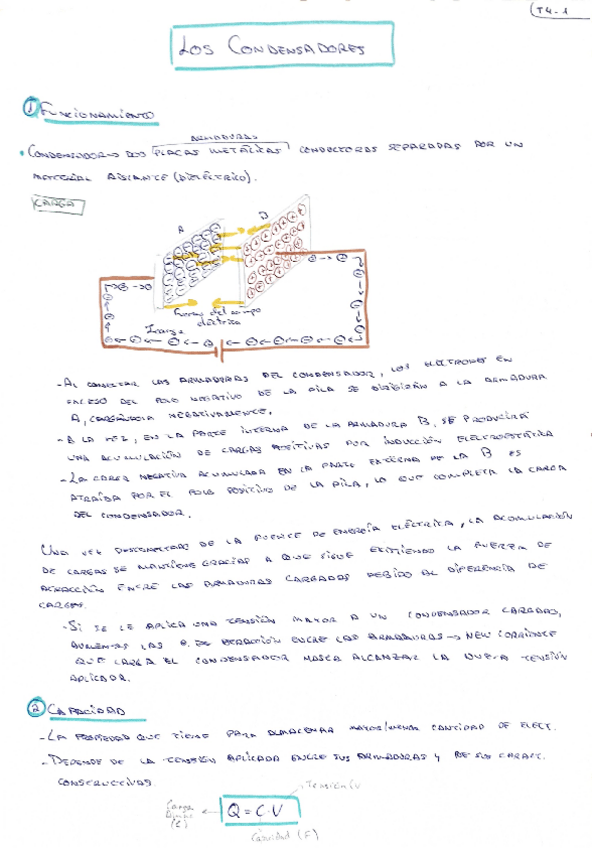 T4.1
LOS CONDENSADORES
① FUNCIONAMIENTO
ARMADURAS
• CONDENSADOR → DOS PLACAS METÁLICAS CONDUCTORAS SEPARADAS POR UN
MATERIAL AISLANTE (DIELÉCTRICO).
CARGA
A B
Fuerzas del campo
eléctrico
- AL CONECTAR LAS ARMADURAS DEL CONDENSADOR, LOS ELECTRONES EN
EXCESO DEL POLO NEGATIVO DE LA PILA SE DIRIGIRÁN A LA ARMADURA
A, CARGÁNDOLA NEGATIVAMENTE.
- A LA VEZ, EN LA PARTE INTERNA DE LA ARMADURA B, SE PRODUCIRÁ
UNA ACUMULACIÓN DE CARGAS POSITIVAS POR INDUCCIÓN ELECTROESTÁTICA
- LA CARGA NEGATIVA ACUMULADA EN LA PARTE EXTERNA DE LA B ES
ATRAÍDA POR EL POLO POSITIVO DE LA PILA, LO QUE COMPLETA LA CARGA
DEL CONDENSADOR.
UNA VEZ DESCONECTADO DE LA FUENTE DE ENERGÍA ELÉCTRICA, LA ACUMULACIÓN
DE CARGAS SE MANTIENE GRACIAS A QUE SIGUE EXISTIENDO LA FUERZA DE
ATRACCIÓN ENTRE LAS ARMADURAS CARGADAS DEBIDO AL DIFERENCIA DE
CARGAS.
- SI SE LE APLICA UNA TENSIÓN MAYOR A UN CONDENSADOR CARGADO,
AUMENTAN LAS DE ENTRE LAS ARMADURAS → NEW CORRIENTE
QUE CARGA EL CONDENSADOR HASTA ALCANZAR LA NUEVA TENSIÓN
APLICADA.
② CAPACIDAD
- LA PROPIEDAD QUE TIENE PARA ALMACENAR MAYOR/MENOR CANTIDAD DE ELECT.
- DEPENDE DE LA TENSIÓN APLICADA ENTRE SUS ARMADURAS Y DE SUS CARACT.
CONSTRUCTIVAS.
Tensión V
Carga
(C)
Q = C·V
Capacidad (F)